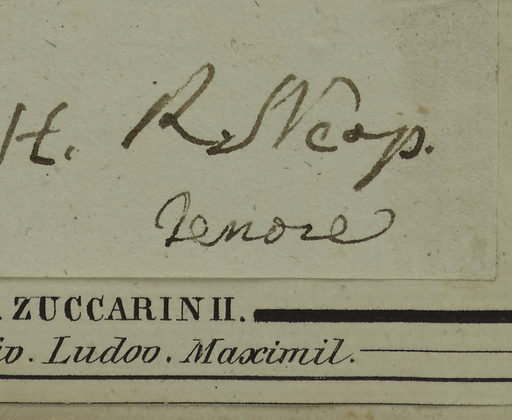 H. R. Neap.
Tenore
ZUCCARINII.
Ludov. Maximil.